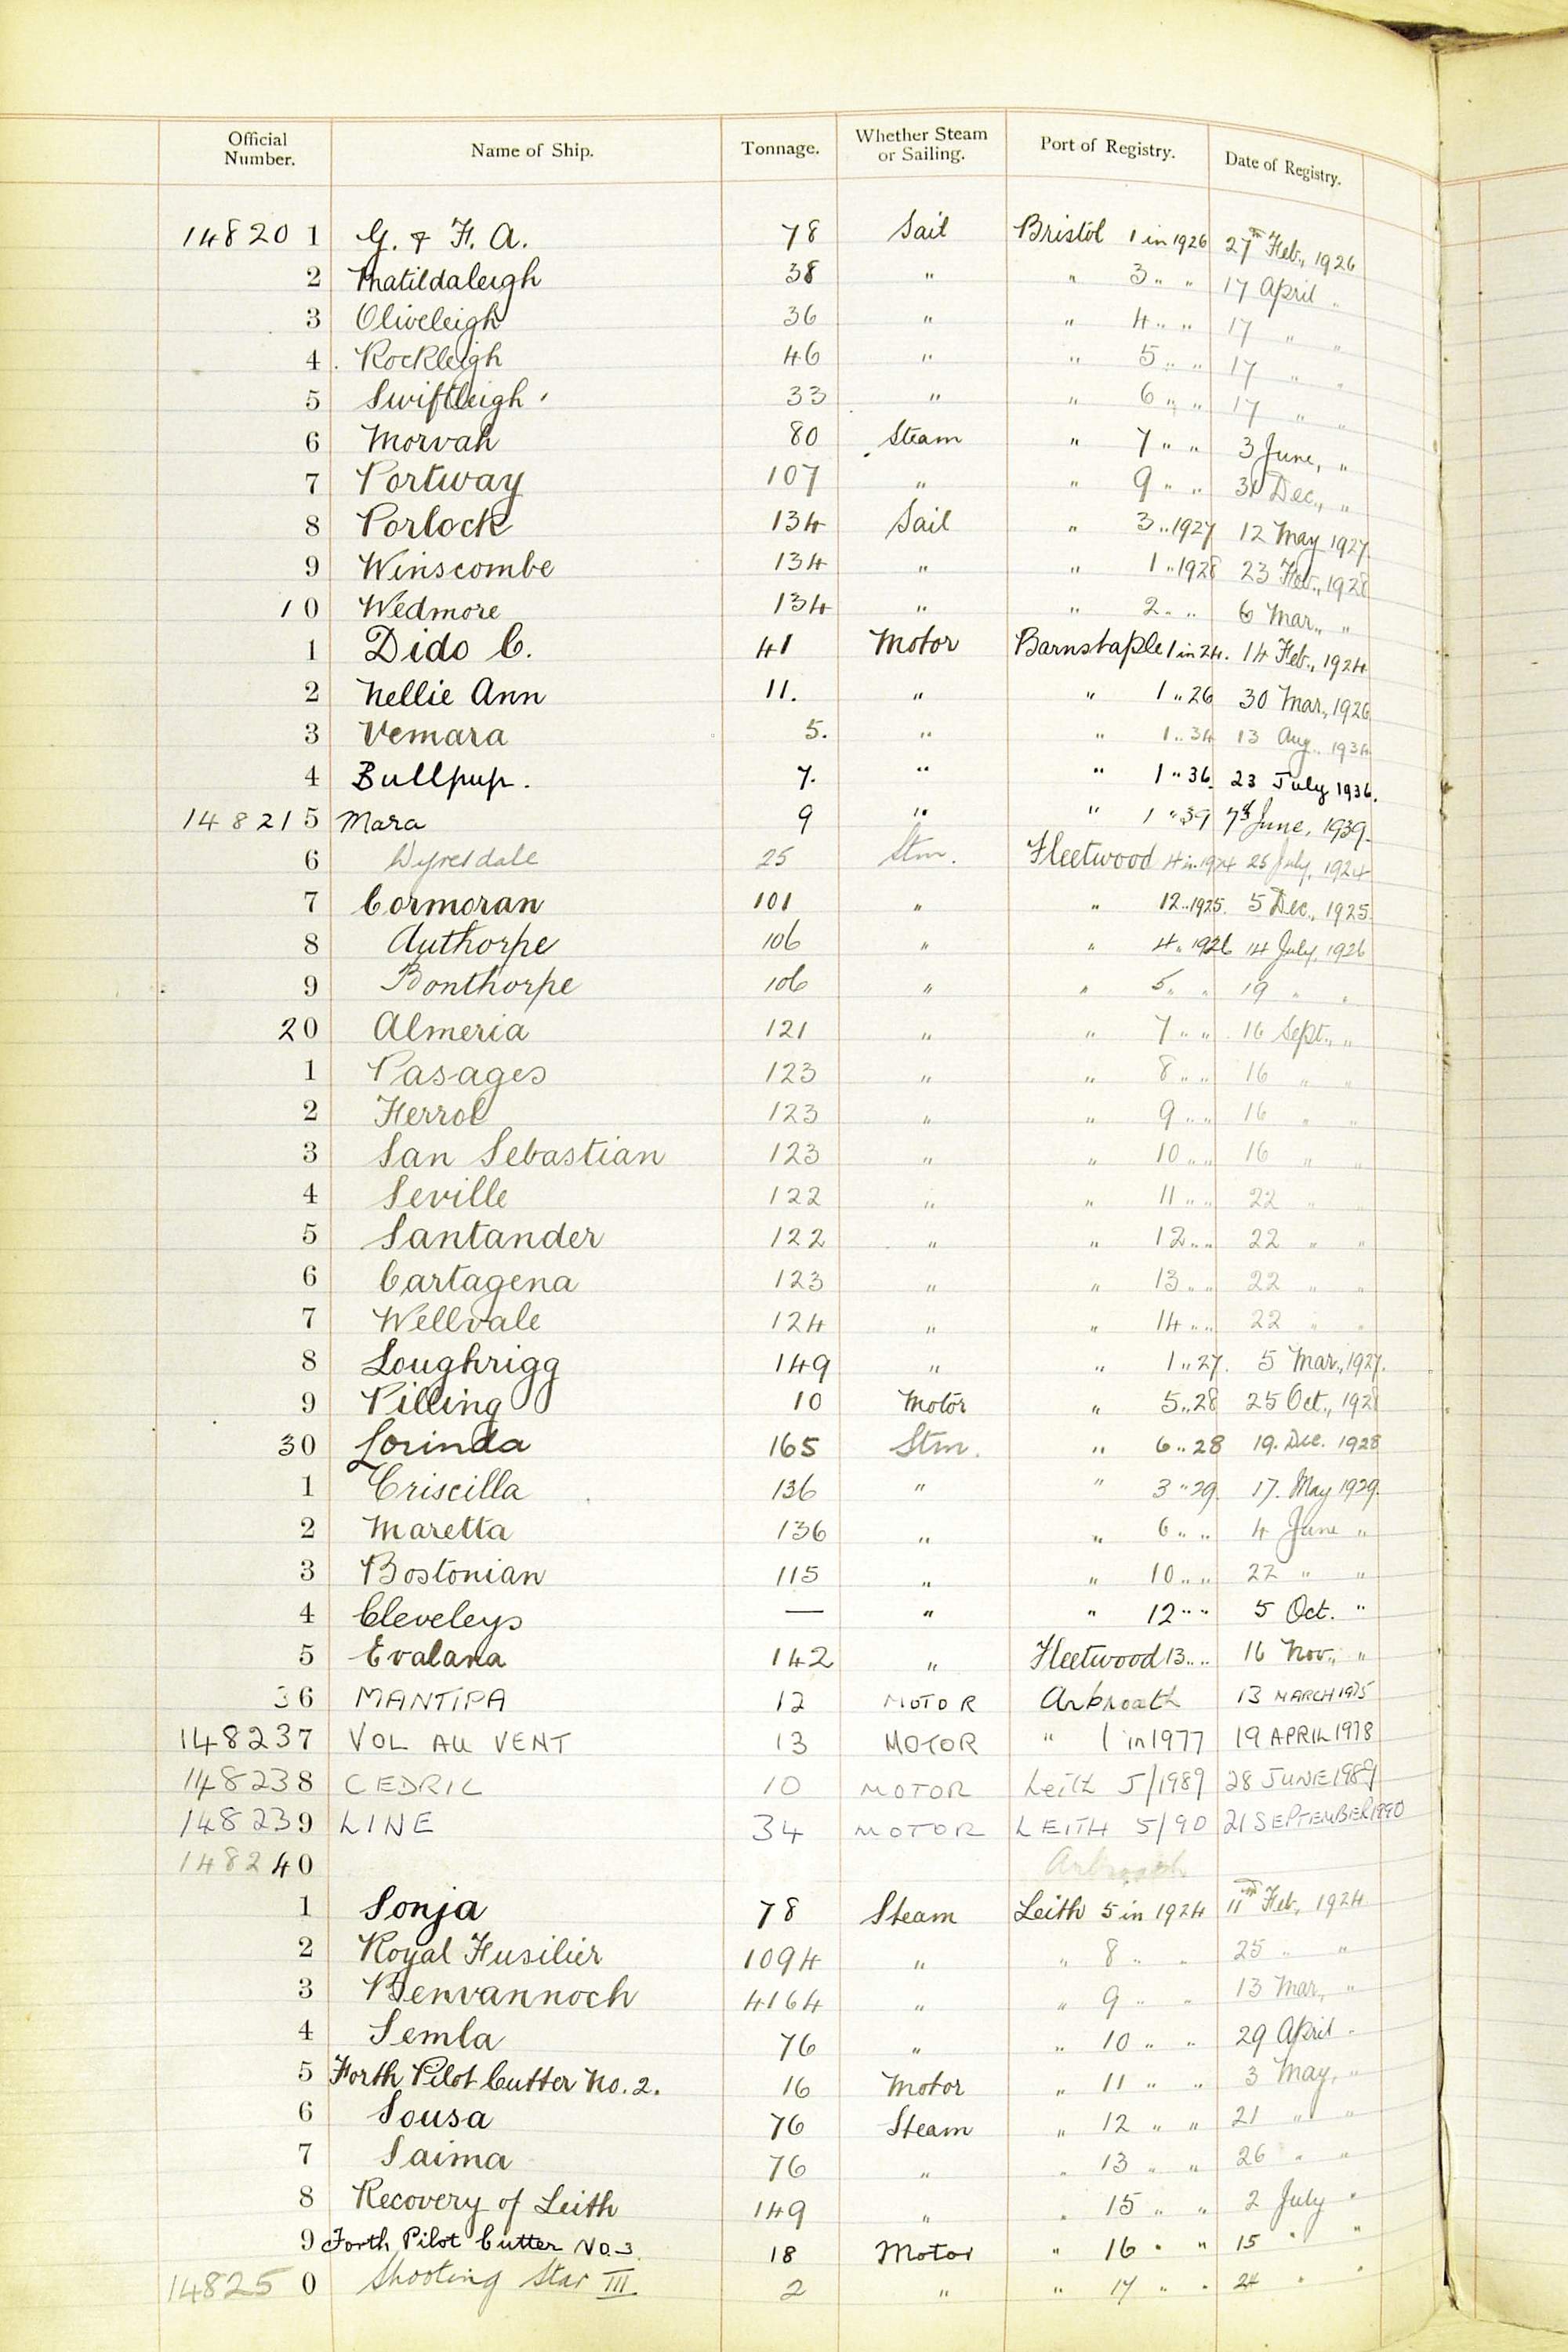 Official Number. Name of Ship. Tonnage. Whether Steam or Sailing. Port of Registry. Date of Registry.
148201 G. & F. A. 78 Sail Bristol 1 in 1926 27th Feb., 1926
2 Matildaleigh 38 " " 3 " " 17 April "
3 Oliveleigh 36 " " 4 " " 17 " "
4 Rockleigh 46 " " 5 " " 17 " "
5 Swiftleigh 33 " " 6 " " 17 " "
6 Morvah 80 Steam " 7 " " 3 June, "
7 Portway 107 " " 9 " " 31 Dec., "
8 Porlock 134 Sail " 3 " 1927 12 May 1927.
9 Winscombe 134 " " 1 " 1928 23 Feb., 1928
10 Wedmore 134 " " 2 " " 6 Mar., "
1 Dido C. 41 Motor Barnstaple 1 in 24. 14 Feb., 1924
2 Nellie Ann 11. " " 1 " 26 30 Mar., 1926
3 Vemara 5. " " 1 " 34 13 Aug. 1934
4 Bullpup. 7. " " 1 " 36. 23 July 1936.
148215 Mara 9 " " 1 " 39 7th June, 1939.
6 Wyresdale 25 Stm. Fleetwood 4 in 1924 25 July, 1924
7 Cormoran 101 " " 12 " 1925. 5 Dec., 1925.
8 Authorpe 106 " " 4 " 1926 14 July, 1926
9 Bonthorpe 106 " " 5 " " 19 " "
20 Almeria 121 " " 7 " " 16 Sept., "
1 Pasages 123 " " 8 " " 16 " "
2 Ferrol 123 " " 9 " " 16 " "
3 San Sebastian 123 " " 10 " " 16 " "
4 Seville 122 " " 11 " " 22 " "
5 Santander 122 " " 12 " " 22 " "
6 Cartagena 123 " " 13 " " 22 " "
7 Wellvale 124 " " 14 " " 22 " "
8 Loughrigg 149 " " 1 " 27. 5 Mar., 1927.
9 Pilling 10 Motor " 5 " 28 25 Oct., 1928
30 Lorinda 165 Stm. " 6 " 28 19. Dec. 1928
1 Criscilla 136 " " 3 " 29. 17. May 1929.
2 Maretta 136 " " 6 " " 4 June "
3 Bostonian 115 " " 10 " " 22 " "
4 Cleveleys — " " 12 " " 5 Oct. "
5 Evalana 142 " Fleetwood 13 " " 16 Nov., "
36 MANTIPA 12 MOTOR Arbroath 13 MARCH 1975
148237 VOL AU VENT 13 MOTOR " 1 in 1977 19 APRIL 1978
148238 CEDRIL 10 MOTOR Leith 5/1989 28 JUNE 1989
148239 LINE 34 MOTOR LEITH 5/90 21 SEPTEMBER 1990
148240 Arbroath
1 Sonja 78 Steam Leith 5 in 1924 11th Feb, 1924
2 Royal Fusilier 1094 " " 8 " " 25 " "
3 Benvannoch 4164 " " 9 " " 13 Mar, "
4 Semla 76 " " 10 " " 29 April "
5 Forth Pilot Cutter No. 2. 16 Motor " 11 " " 3 May, "
6 Sousa 76 Steam " 12 " " 21 " "
7 Saima 76 " " 13 " " 26 " "
8 Recovery of Leith 149 " " 15 " " 2 July "
9 Forth Pilot Cutter No. 3. 18 Motor " 16 " " 15 " "
148250 Shooting Star III 2 " " 17 " " 24 " "